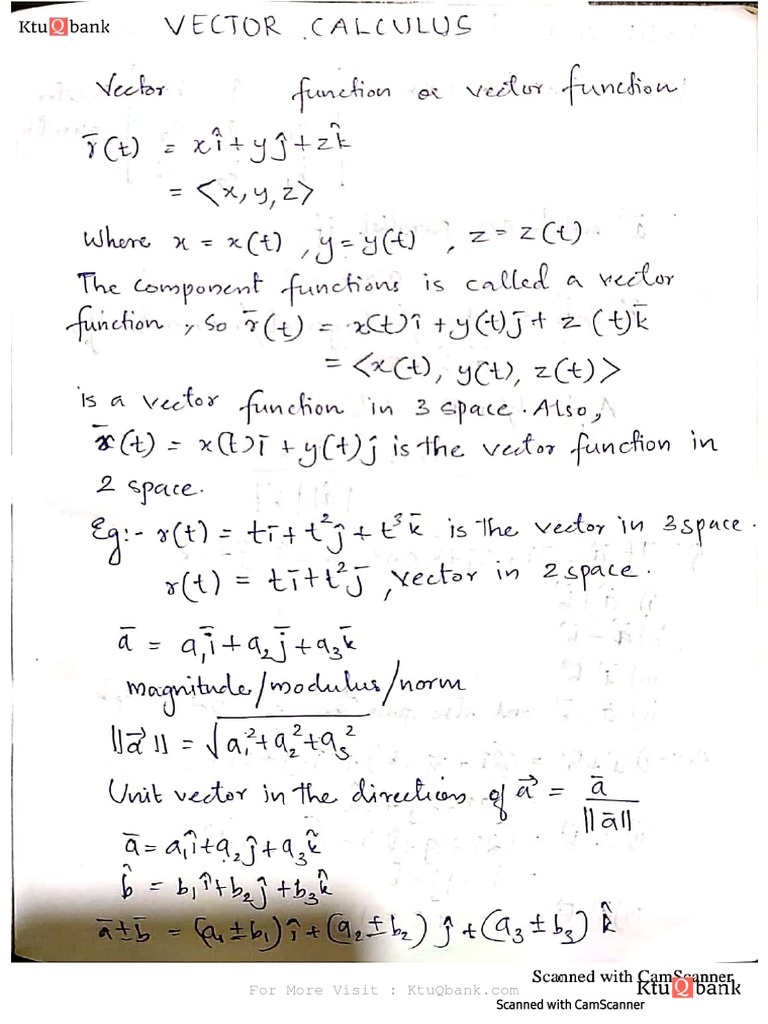 KtuQbank
VECTOR CALCULUS
Vector function or vector function
r̄(t) = xî + yĵ + zk̂
= <x, y, z>
Where x = x(t), y = y(t), z = z(t).
The component functions is called a vector
function, so r̄(t) = x(t)î + y(t)j̄ + z(t)k̄
= <x(t), y(t), z(t)>
is a vector function in 3 space. Also,
r̄(t) = x(t)ī + y(t)ĵ is the vector function in
2 space.
Eg:- r(t) = tī + t²ĵ + t³k̄ is the vector in 3 space.
r(t) = tī + t²j̄, vector in 2 space.
ā = a₁ī + a₂j̄ + a₃k̄
magnitude/modulus/norm
||a⃗|| = √a₁² + a₂² + a₃²
Unit vector in the directions of a⃗ = ā / ||ā||
ā = a₁î + a₂ĵ + a₃k̂
b̂ = b₁î + b₂ĵ + b₃k̂
ā ± b̄ = (a₁ ± b₁)î + (a₂ ± b₂)ĵ + (a₃ ± b₃)k̂
Scanned with CamScanner
KtuQbank
For More Visit : KtuQbank.com
Scanned with CamScanner